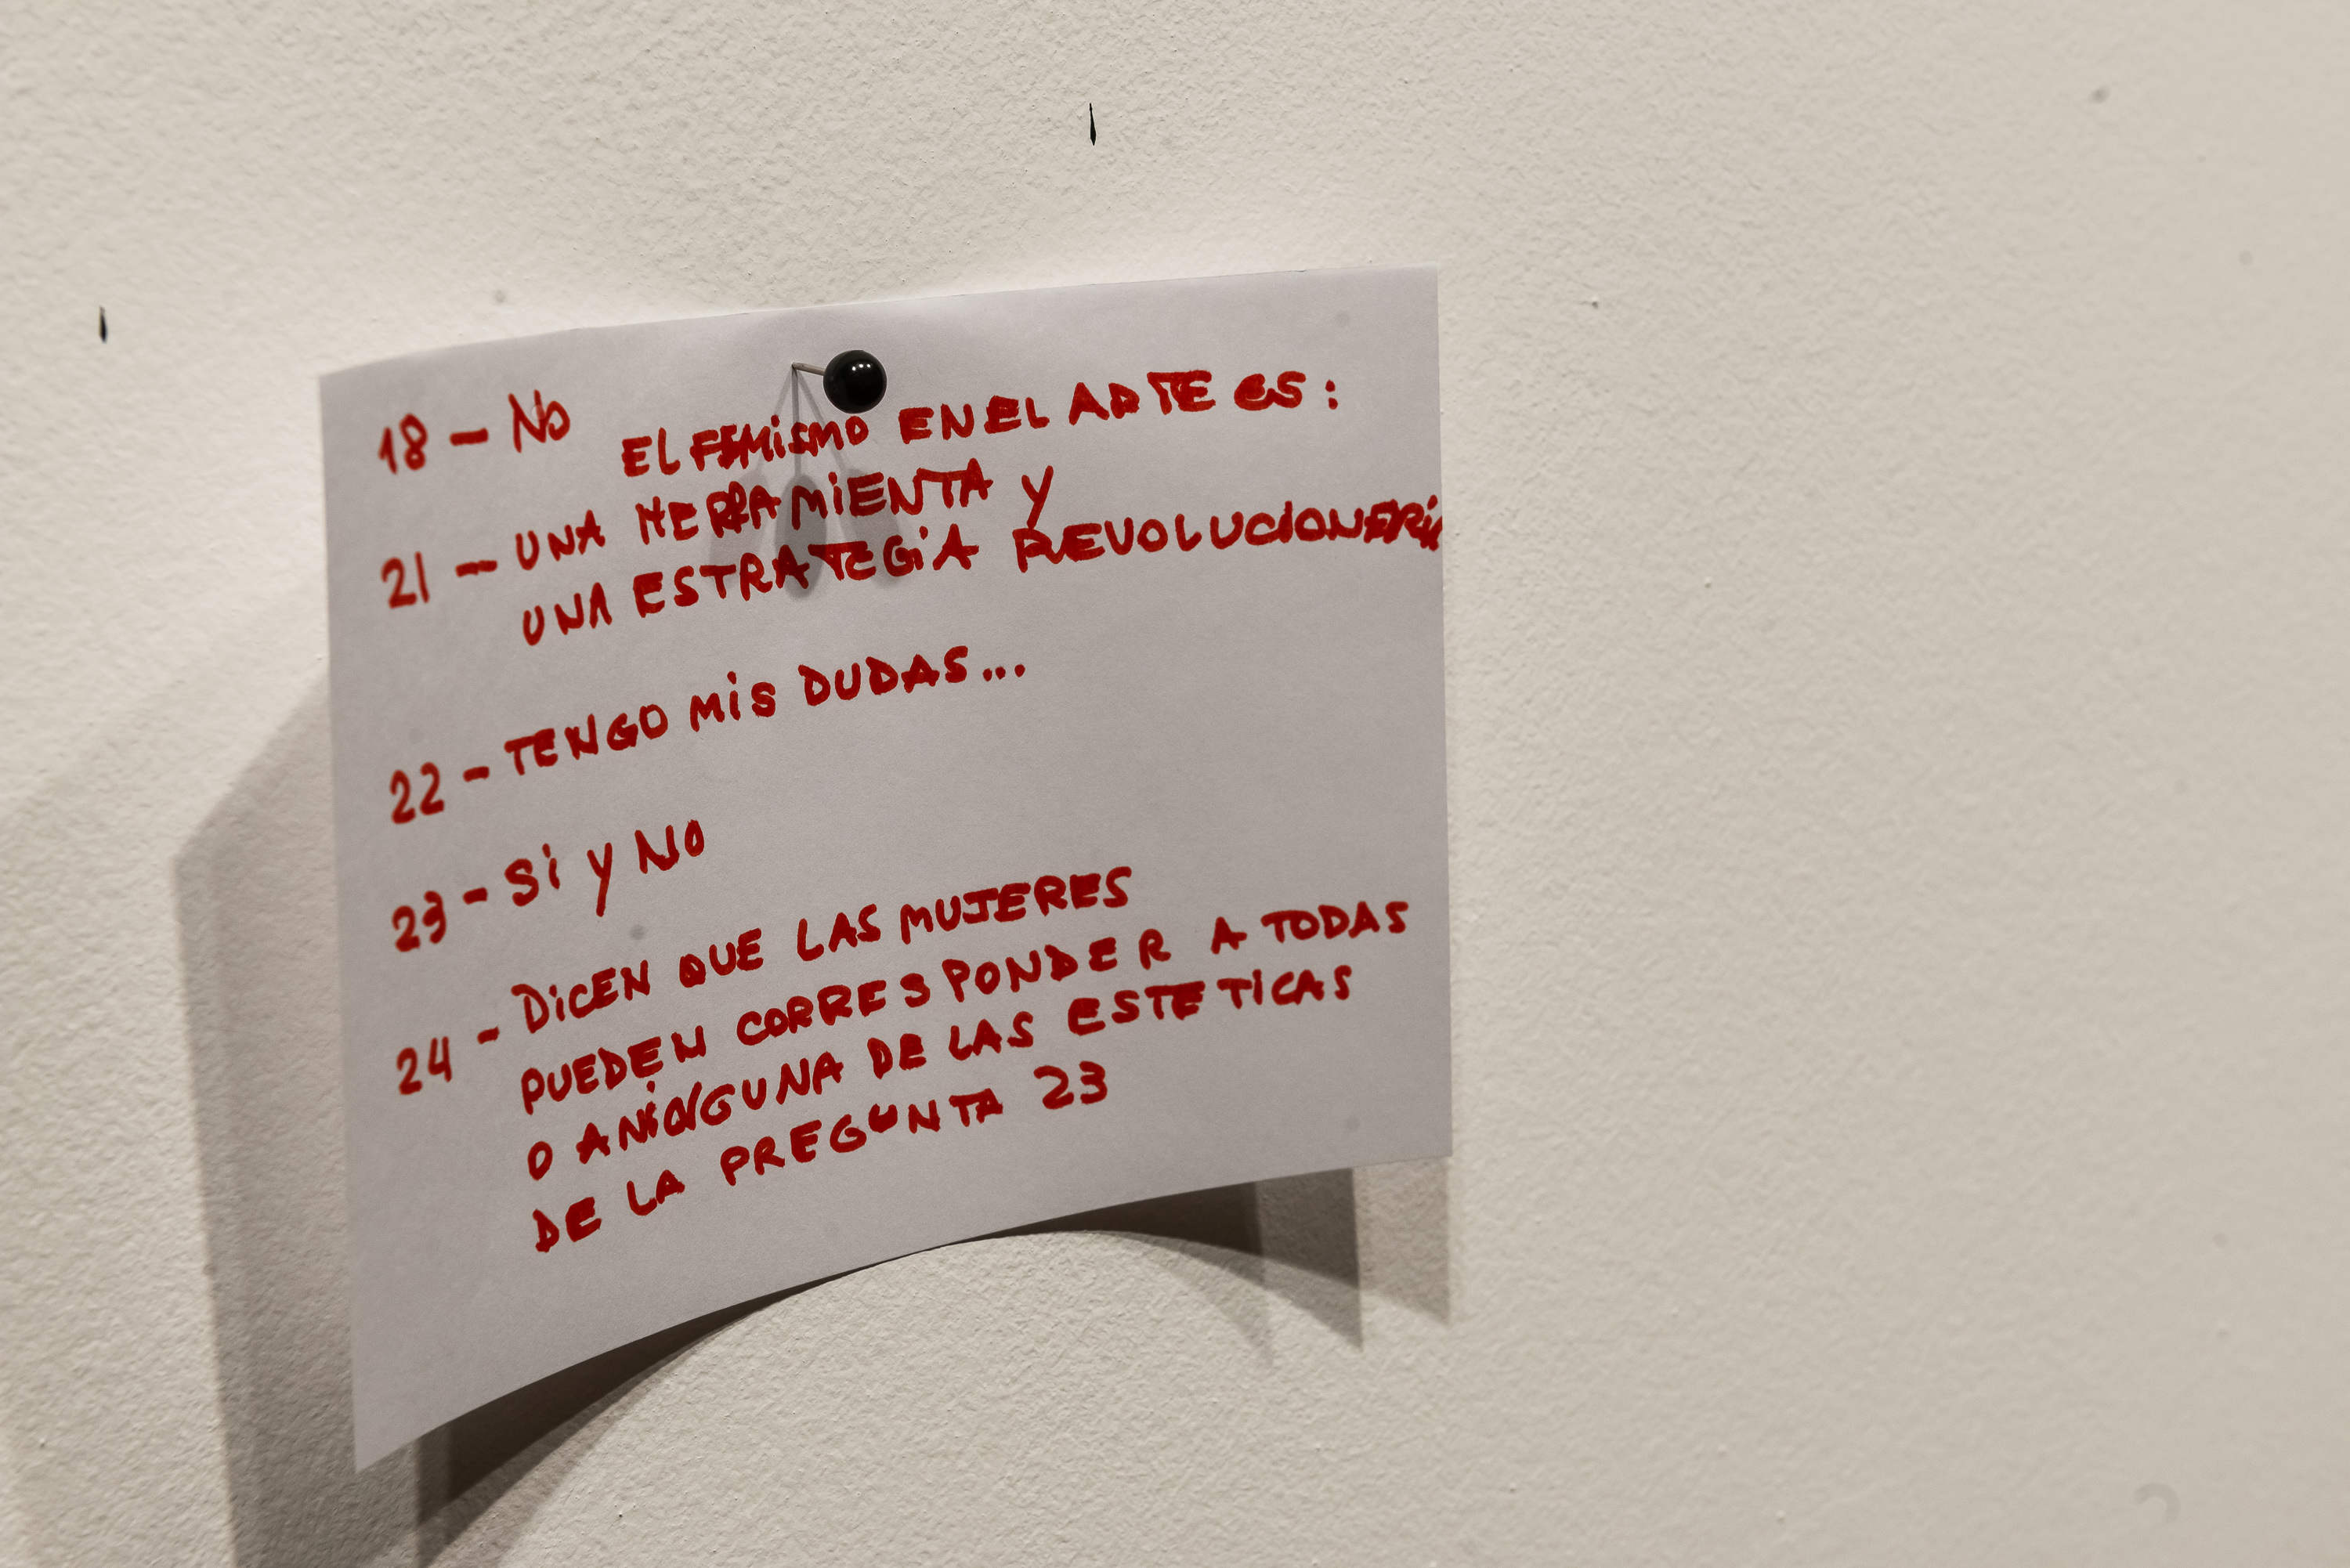 18 - No
EL FEMiSMO EN EL ARTE eS:
21 - UNA HERRAMiENTA y
UNA ESTRATEGiA REVOLUCIONERIA
22 - TENGO MiS DUDAS...
23 - Si y NO
24 - DiCEN QUE LAS MUJERES
PUEDEN CORRESPONDER A TODAS
O A NiNGUNA DE LAS ESTETICAS
DE LA PREGUNTA 23